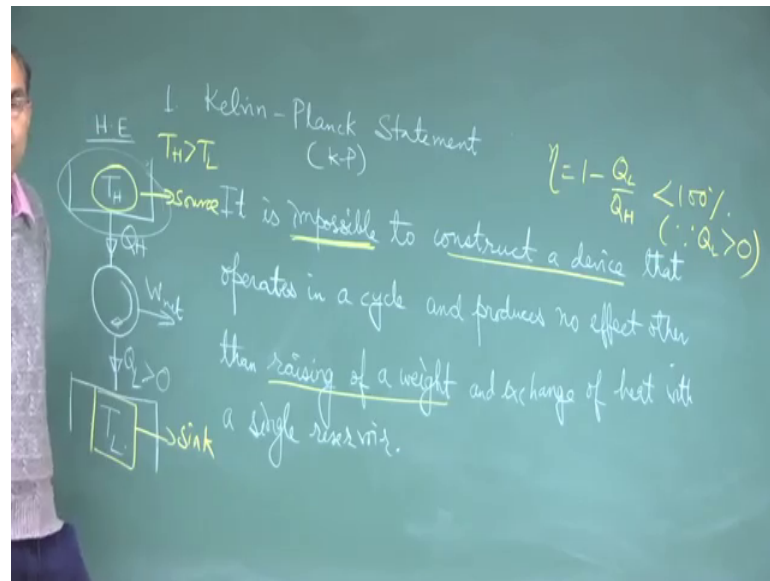 1. Kelvin-Planck Statement
(K-P)
H.E
T_H > T_L
T_H → Source
Q_H
W_net
Q_L > 0
T_L → Sink
It is impossible to construct a device that
operates in a cycle and produces no effect other
than raising of a weight and exchange of heat with
a single reservoir.
η = 1 - Q_L/Q_H < 100%
(∵ Q_L > 0)